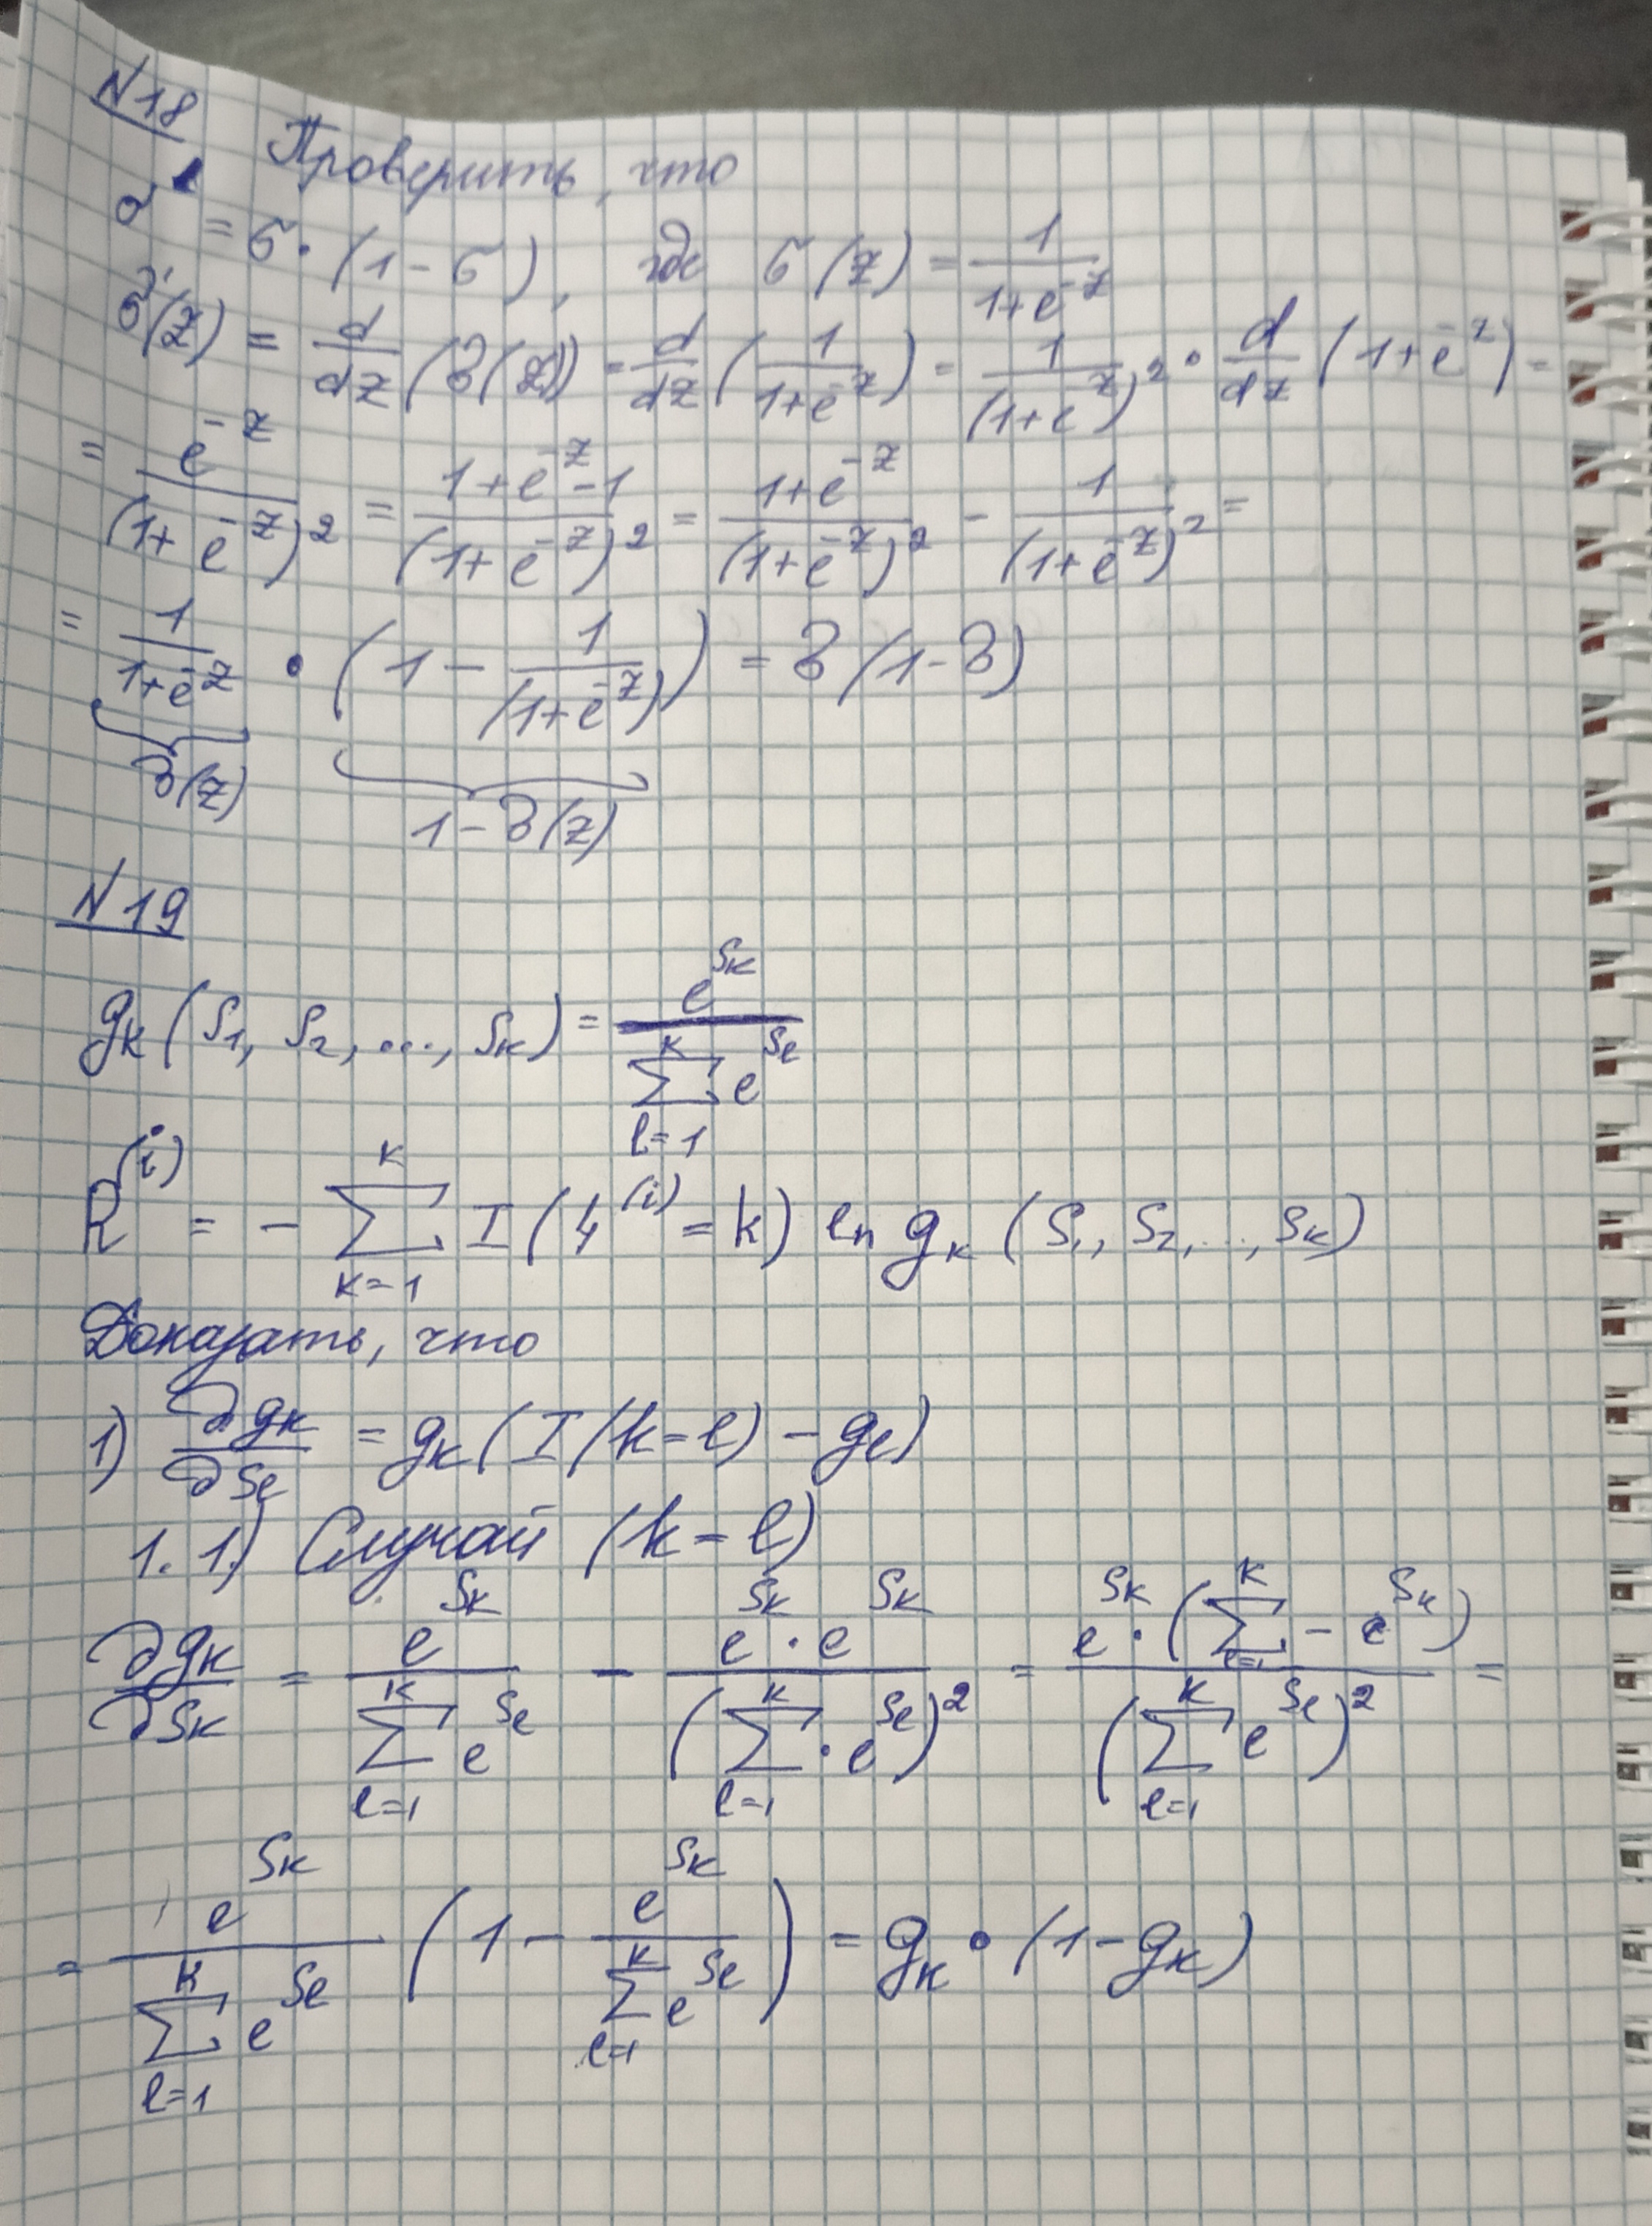 N18 Проверить, что
σ' = σ · (1 - σ), где σ(z) = 1/(1+e^-z)
σ'(z) = d/dz (σ(z)) = d/dz (1/(1+e^-z)) = 1/(1+e^-z)^2 · d/dz (1+e^-z) =
= e^-z/(1+e^-z)^2 = (1+e^-z-1)/(1+e^-z)^2 = (1+e^-z)/(1+e^-z)^2 - 1/(1+e^-z)^2 =
= 1/(1+e^-z) · (1 - 1/(1+e^-z)) = σ(1-σ)
σ(z) 1-σ(z)
N19
g_k(S_1, S_2, ..., S_k) = e^{S_k} / ∑_{l=1}^{K} e^{S_l}
R^(i) = - ∑_{k=1}^{K} I(y^(i) = k) ln g_k (S_1, S_2, .., S_k)
Доказать, что
1) ∂g_k/∂S_l = g_k(I(k=l) - g_l)
1.1) Случай (k=l)
∂g_k/∂S_k = e^{S_k} / ∑_{l=1}^{K} e^{S_l} - e^{S_k} · e^{S_k} / (∑_{l=1}^{K} · e^{S_l})^2 = e^{S_k} · (∑_{l=1}^{K} - e^{S_k}) / (∑_{l=1}^{K} e^{S_l})^2 =
= e^{S_k} / ∑_{l=1}^{K} e^{S_l} (1 - e^{S_k} / ∑_{l=1}^{K} e^{S_l}) = g_k · (1 - g_k)